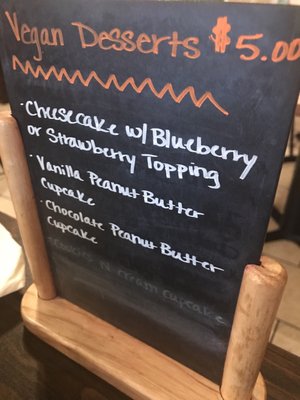 Vegan Desserts $5.00
• Cheesecake w/ Blueberry
or Strawberry Topping
• Vanilla Peanut Butter
Cupcake
• Chocolate Peanut Butter
Cupcake
Cookies N Cream Cupcake